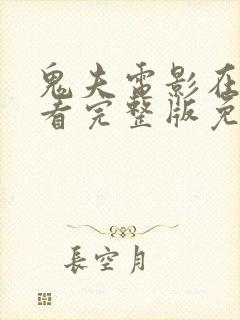 鬼夫電影在
看完整版免
長空月